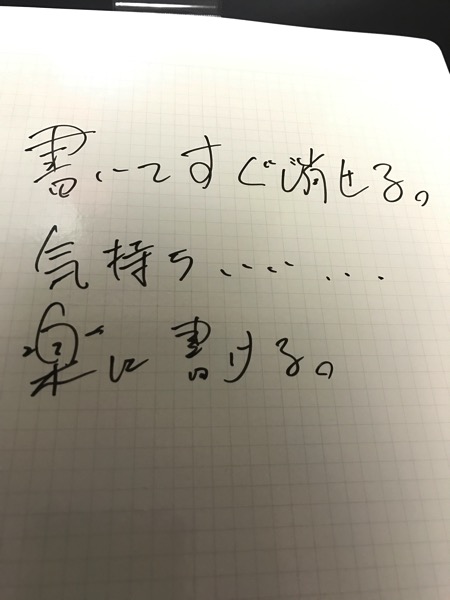 書いてすぐ消せる。
気持ち………
楽に書ける。